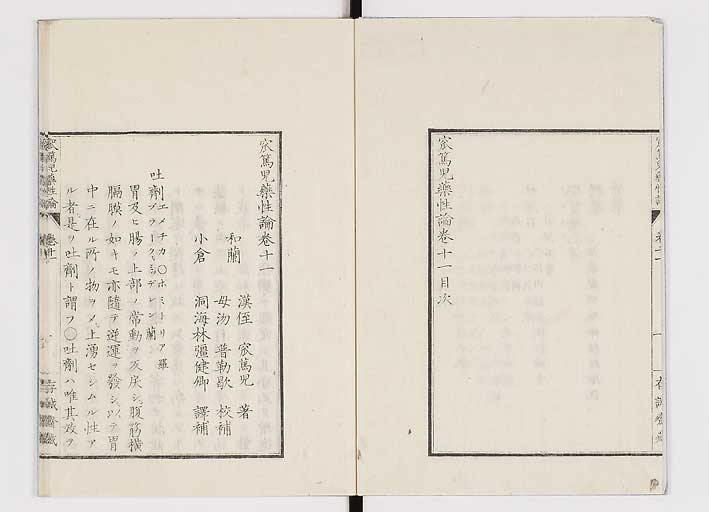 窊篤児薬性論巻十一目次
窊篤児薬性論巻十一
和蘭 漢侄 窊篤児 著
母汤 普勒歇 校補
小倉 洞海林彊健卿 訳補
吐剤 エメチカ〇ホミトリア 羅
ブラークミッデレン 蘭
胃及ヒ腸ノ上部ノ常動ヲ反戻シ腹筋横
膈膜ノ如キモ亦随テ逆運ヲ発シ以テ胃
中ニ在ル所ノ物ヲメ上湧セシムル性ア
ル者是ヲ吐剤ト謂フ〇吐剤ハ唯其効ヲ
窊篤児薬性論